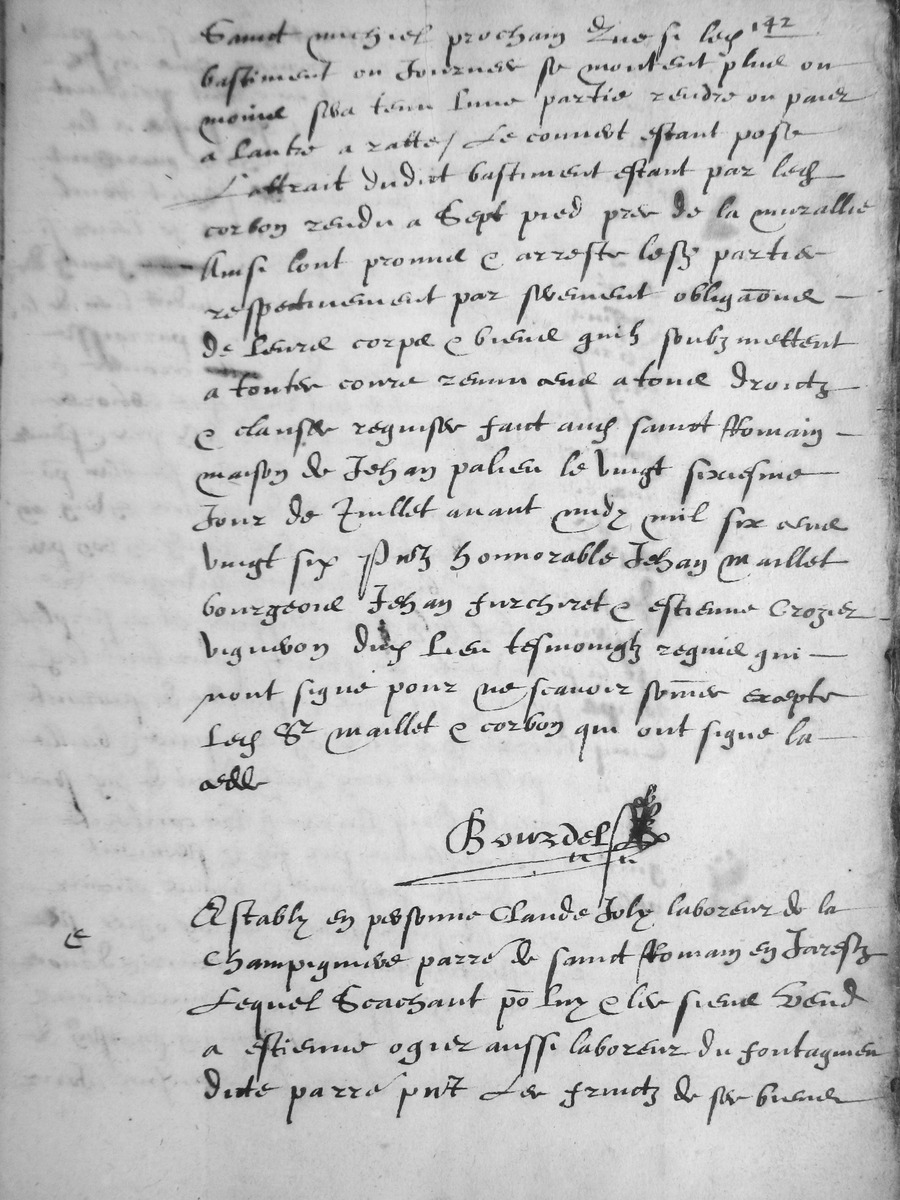 142
Sainct michiel prochain Que si led
bastiment ou Journes se montent plus ou
moins sera tenu lune partie rendre ou paier
a lautre a ratte / Le couvert estant pose
Lattrait dudict bastiment estant par led
corbon rendu a Sept pied pres de la murallie
Ainsi lont promis & arreste lesd parties
respectivement par serement obligaōns
de leurs corps & biens quilz soubzmettent
a toutes cours renun cens a tous droictz
& clauses requises faict aud sainct Romain
maison de Jehan palieu le vingt sixiesme
Jour de Juillet avant midy mil six cens
vingt six Pntz honnorable Jehan Maillet
bourgeois Jehan furchiret & estienne Crozier
vigneron dud Lieu tesmoingtz requis qui
nont signe pour ne scavoir somēs excepte
Led Sr Maillet & corbon qui ont signe la
cedde
Bourdel
E
Establz en personne Claude Joly laboreur de la
Champignere parre de sainct Romain en Jarestz
Lequel Scachant po luy & les siens Vend
a estienne ogier aussi laboreur du fontagnieu
dicte parre pnt Les fruictz de ses biens